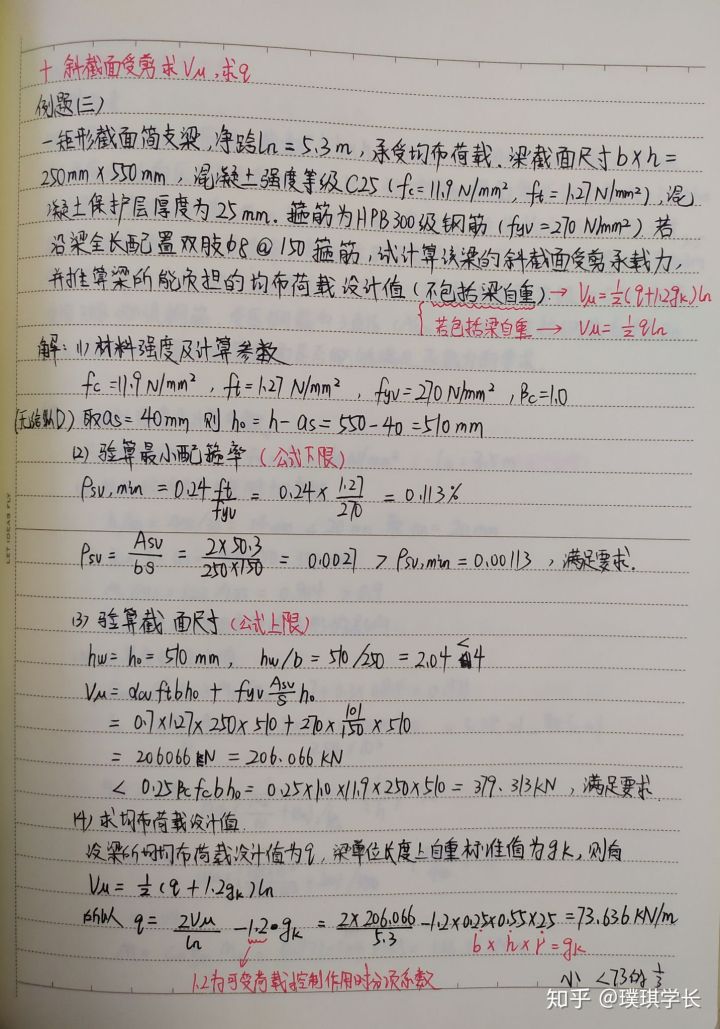 十 斜截面受剪求Vu,求q
例题(三)
一矩形截面简支梁,净跨ln=5.3m,承受均布荷载.梁截面尺寸b×h=
250mm×550mm,混凝土强度等级C25(fc=11.9N/mm²,ft=1.27N/mm²),混
凝土保护层厚度为25mm.箍筋为HPB300级钢筋(fyv=270N/mm²)若
沿梁全长配置双肢φ8@150箍筋,试计算该梁的斜截面受剪承载力,
并推算梁所能负担的均布荷载设计值(不包括梁自重)→Vu=½(q+1.2gk)ln
若包括梁自重→Vu=½qln
解:(1)材料强度及计算参数
fc=11.9N/mm²,ft=1.27N/mm²,fyv=270N/mm²,βc=1.0
取as=40mm 则h0=h-as=550-40=510mm
(2)验算最小配箍率(公式下限)
ρsv,min=0.24 ft/fyv=0.24×1.27/270=0.113%
ρsv=Asv/bs=2×50.3/250×150=0.0027>ρsv,min=0.00113,满足要求.
(3)验算截面尺寸(公式上限)
hw=h0=510mm,hw/b=510/250=2.04<4
Vu=αcv ftbh0+fyv Asv/s h0
=0.7×1.27×250×510+270×101/150×510
=206066N=206.066KN
<0.25βcfcbh0=0.25×1.0×11.9×250×510=379.313KN,满足要求.
(4)求均布荷载设计值.
设梁所均布荷载设计值为q,梁单位长度上自重标准值为gk,则有
Vu=½(q+1.2gk)ln
所以 q=2Vu/ln-1.2·gk=2×206.066/5.3-1.2×0.25×0.55×25=73.636KN/m
b×h×r=gk
1.2为可变荷载控制作用时分项系数
小 <73的⅓
LET IDEAS FLY
知乎 @璞琪学长